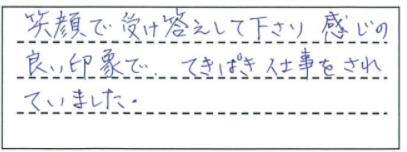 笑顔で受け答えして下さり 感じの
良い印象で、てきぱき仕事をされ
ていました。